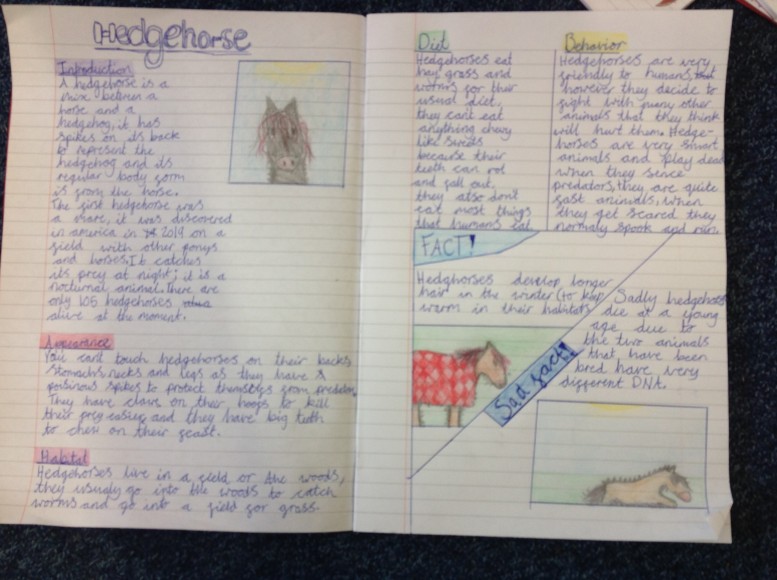 Hedgehorse
Introduction
A hedgehorse is a
mix between a
horse and a
hedgehog, it has
spikes on its back
to represent the
hedgehog and its
regular body form
is from the horse.
The first hedgehorse was
a mare, it was discovered
in america in 2019 on a
field with other ponys
and horses. It catches
its prey at night; it is a
nocturnal animal. There are
only 105 hedgehorses
alive at the moment.
Appearance
You cant touch hedgehorses on their backs
stomachs, necks and legs as they have
poisinous spikes to protect themselfs from predators
They have claws on their hoofs to kill
their prey easier and they have big teeth
to chew on their feast.
Habitat
Hedgehorses live in a field or the woods,
they usualy go into the woods to catch
worms and go into a field for grass.
Diet
Hedgehorses eat
hay, grass and
worms for their
usual diet.
they cant eat
anything chewy
like sweets
because their
teeth can rot
and fall out,
they also dont
eat most things
that humans eat.
Behavior
Hedgehorses are very
friendly to humans,
however they decide to
fight with many other
animals that they think
will hurt them. Hedge-
horses are very smart
animals and play dead
when they sence
predators, they are quite
fast animals, when
they get scared they
normaly spook and run.
FACT!
Hedghorses develop longer
hair in the winter (to keep
warm in their habitat).
Sad fact!
Sadly hedgehorses
die at a young
age due to
the two animals
that have been
bred have very
different DNA.